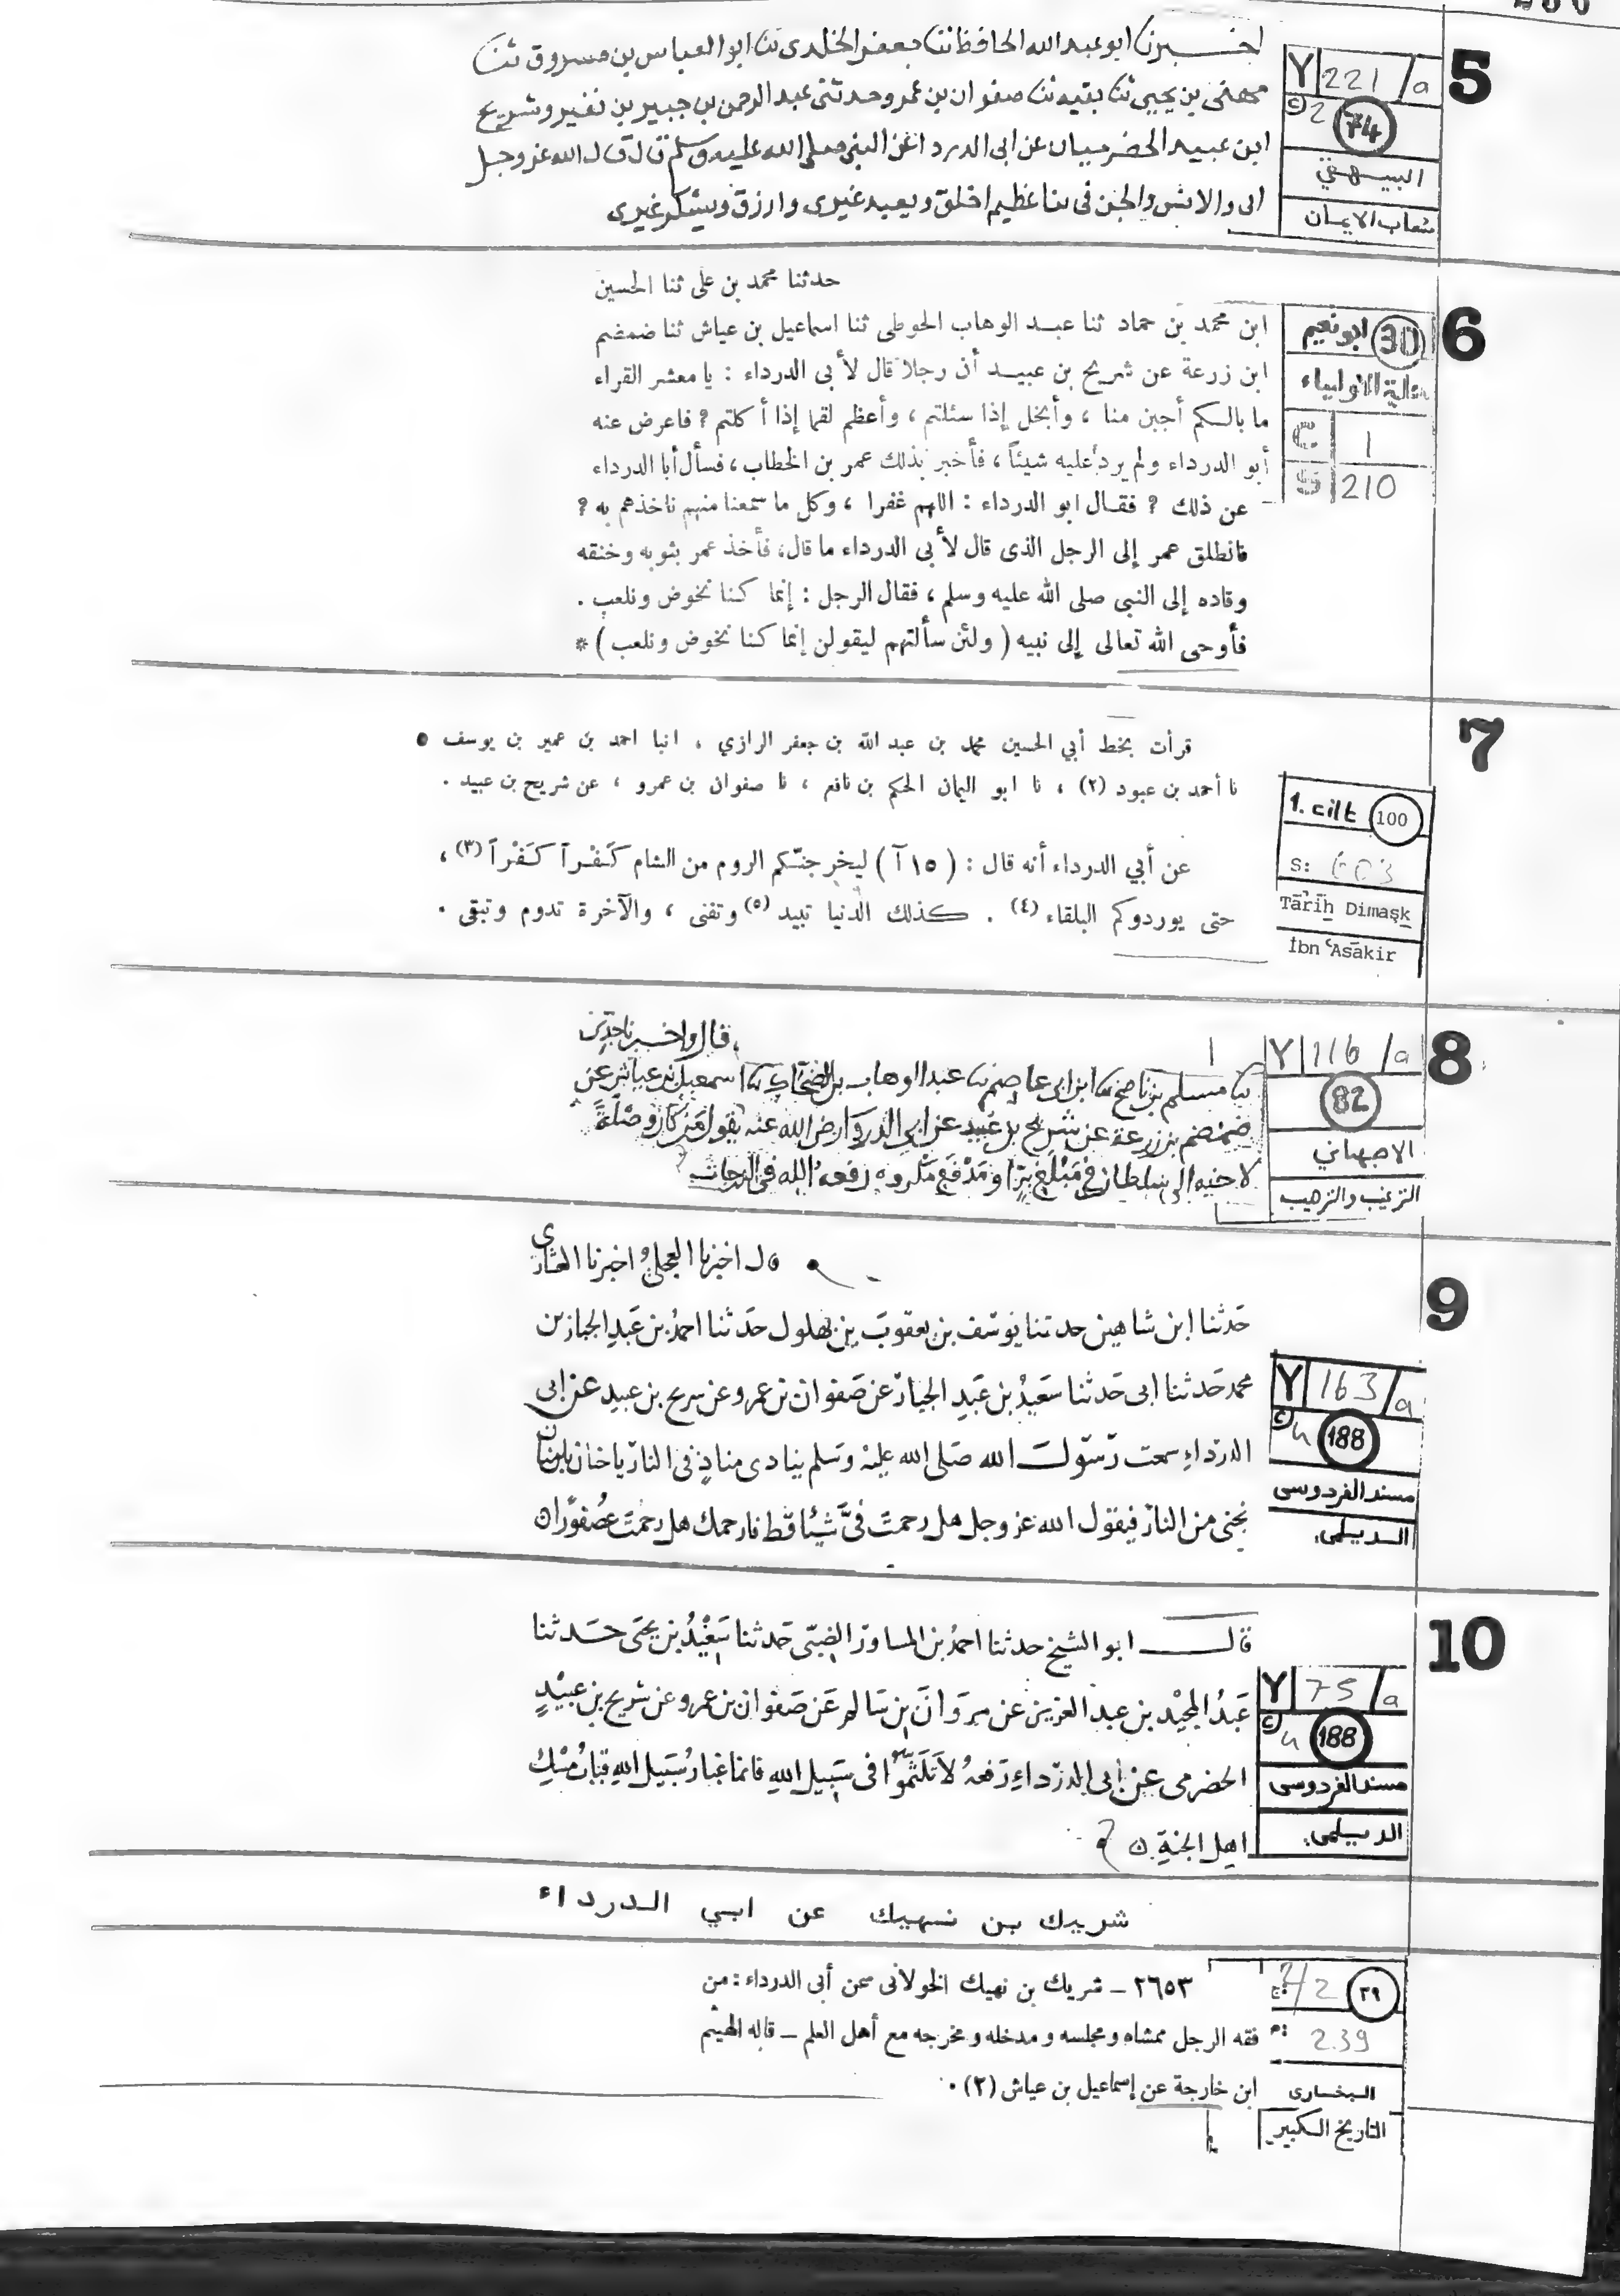 5
اخبرنا ابو عبد الله الحافظ ثنا جعفر الخلدى ثنا ابو العباس بن مسروق ثنا
مهنى بن يحيى ثنا بقيه ثنا صفوان بن عمرو حدثنى عبد الرحمن بن جبير بن نفير وشريح
ابن عبيد الحضرميان عن ابى الدرداء عن النبى صلى الله عليه وسلم قال قال الله عز وجل
انى والانس والجن فى نبا عظيم اخلق ويعبد غيرى وارزق ويشكر غيرى
Y 221 /a
© 2 74
البيهقي
شعاب الايمان
6
حدثنا محمد بن على ثنا الحسين
ابن محمد بن حماد ثنا عبد الوهاب الحوطى ثنا اسماعيل بن عياش ثنا ضمضم
ابن زرعة عن شريح بن عبيد أن رجلا قال لأبى الدرداء : يا معشر القراء
ما بالكم أجبن منا ، وأبخل إذا سئلتم ، وأعظم لقما إذا أكلتم ؟ فاعرض عنه
أبو الدرداء ولم يرد عليه شيئاً ، فأخبر بذلك عمر بن الخطاب ، فسأل أبا الدرداء
عن ذلك ؟ فقال ابو الدرداء : اللهم غفرا ، وكل ما سمعنا منهم ناخذهم به ؟
فانطلق عمر إلى الرجل الذى قال لأبى الدرداء ما قال ، فأخذ عمر بثوبه وخنقه
وقاده إلى النبى صلى الله عليه وسلم ، فقال الرجل : إنما كنا نخوض ونلعب .
فأوحى الله تعالى إلى نبيه ( ولئن سألتهم ليقولن إنما كنا نخوض ونلعب ) *
30 ابو نعيم
حلية الاولياء
C 1
S 210
7
قرأت بخط أبي الحسين محمد بن عبد الله بن جعفر الرازي ، انبا احمد بن عمير بن يوسف
نا أحمد بن عبود (٢) ، نا ابو اليمان الحكم بن نافع ، نا صفوان بن عمرو ، عن شريح بن عبيد .
عن أبي الدرداء أنه قال : ( ١٥ آ ) ليخرجنّكم الروم من الشام كَفْراً كَفْراً (٣) ،
حتى يوردوكم البلقاء (٤) . كذلك الدنيا تبيد (٥) وتفنى ، والآخرة تدوم وتبقى .
1. cilt 100
S: 603
Tārīh Dimaşk
İbn ʿAsākir
8
قال واخبرنا جدى
ثنا مسلم بن ناصح ثنا ابن ابى عاصم ثنا عبد الوهاب بن الضحاك ثنا اسمعيل بن عياش عن
ضمضم بن زرعة عن شريح بن عبيد عن ابي الدرداء رضى الله عنه يقول من كان وصلة
لاخيه الى سلطان فى مبلغ بر او مدفع مكروه رفعه الله فى الدرجات
Y 116 /a
82
الاصبهاني
الترغيب والترهيب
9
قال اخبرنا العجلى اخبرنا العشارى
حدثنا ابن شاهين حدثنا يوسف بن يعقوب بن بهلول حدثنا احمد بن عبد الجبار بن
محمد حدثنا ابى حدثنا سعيد بن عبد الجبار عن صفوان بن عمرو عن شريح بن عبيد عن ابى
الدرداء سمعت رسول الله صلى الله عليه وسلم ينادى مناد فى النار يا حنان يا منان
نجنى من النار فيقول الله عز وجل هل رحمت فىّ شيئا قط فارحمك هل رحمت عصفورا
Y 163 /a
© 4 188
مسند الفردوسى
الديلمى
10
قال ابو الشيخ حدثنا احمد بن المساور الضبّى حدثنا سعيد بن يحيى حدثنا
عبد المجيد بن عبد العزيز عن مروان بن سالم عن صفوان بن عمرو عن شريح بن عبيد
الحضرمى عن ابى الدرداء رفعه لا تلثموا فى سبيل الله فانما غبار سبيل الله فتات مسك
اهل الجنة
Y 75 /a
© 4 188
مسند الفردوسى
الديلمى
شريك بن نهيك عن ابي الدرداء
٢٦٥٣ – شريك بن نهيك الخولانى عن أبى الدرداء : من
فقه الرجل ممشاه ومجلسه و مدخله و مخرجه مع أهل العلم – قاله الهيثم
ابن خارجة عن إسماعيل بن عياش (٢) .
ج: 2/2 ٣٩
م: 239
البخارى
التاريخ الكبير